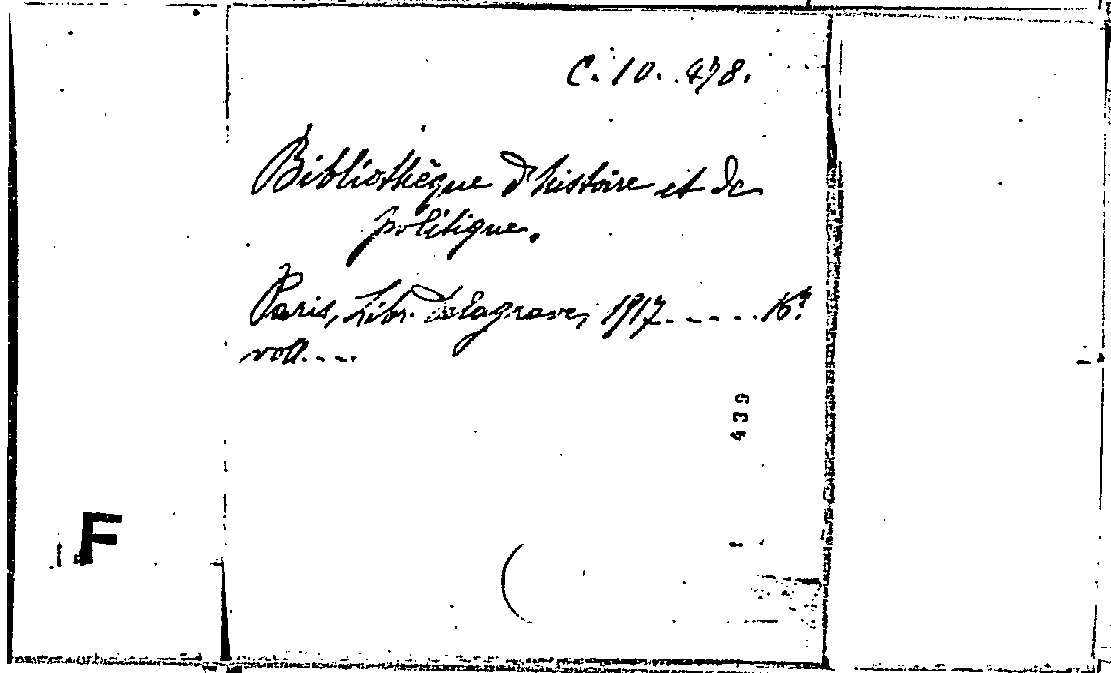 C. 10. 478.
Bibliothèque d'histoire et de
politique.
Paris, Libr. Delagrave, 1917 - - - - - 16°.
voll. - - -
439
F